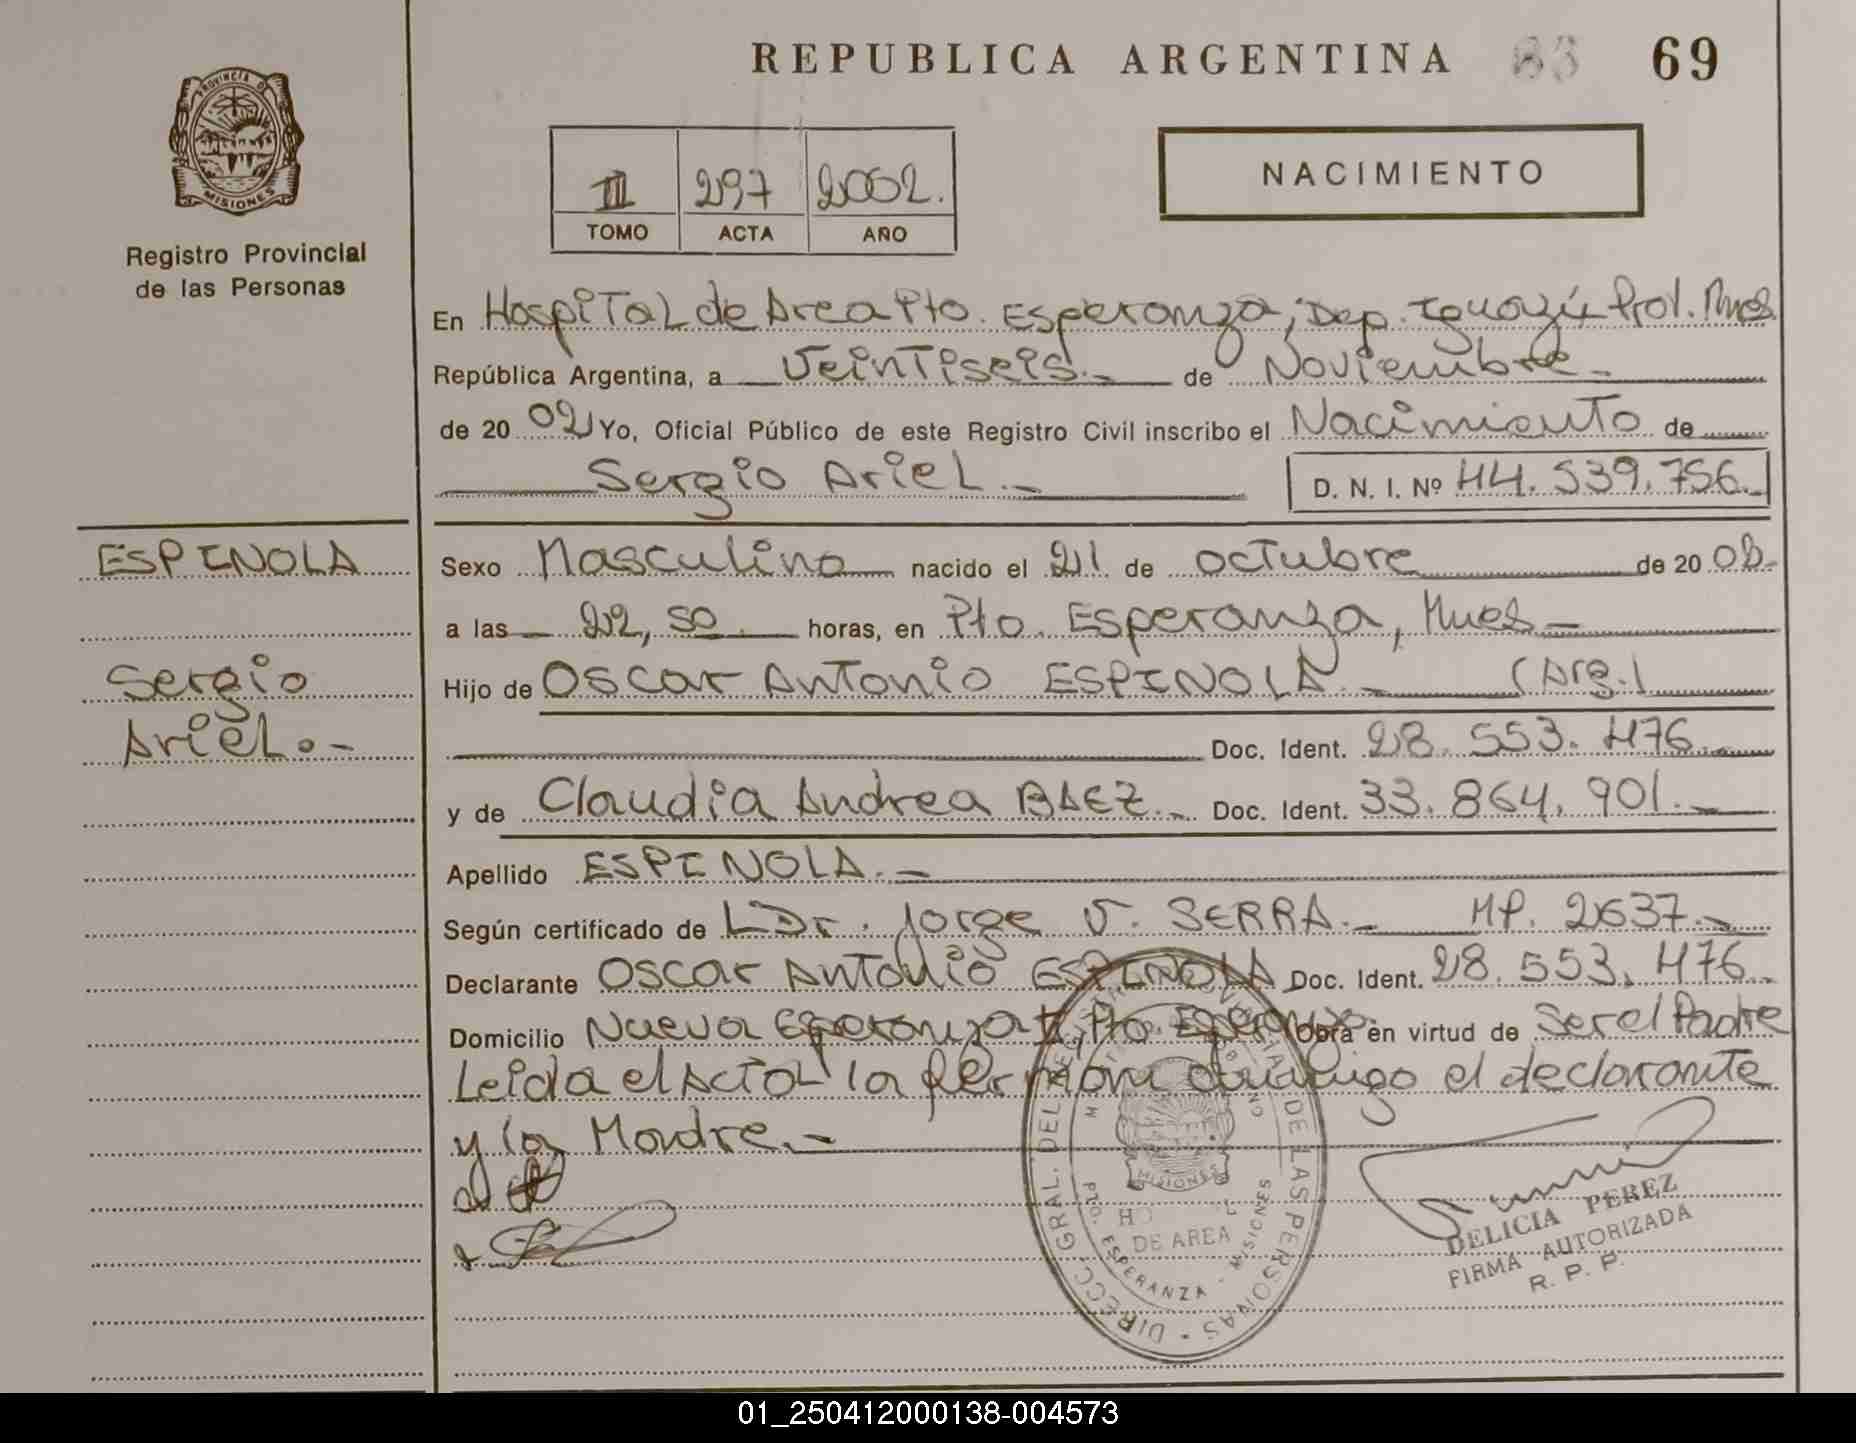 REPUBLICA ARGENTINA 83 69
PROVINCIA D
MISIONES
Registro Provincial
de las Personas
II 297 2002.
TOMO ACTA AÑO
NACIMIENTO
En Hospital de Area Pto. Esperanza, Dep. Iguazú Prov. Mnes
República Argentina, a Veintiseis.- de Noviembre.-
de 20 02 Yo, Oficial Público de este Registro Civil inscribo el Nacimiento de
Sergio Ariel.- D. N. I. Nº 44.539.756.-
ESPINOLA
Sergio
Ariel.-
Sexo Masculino nacido el 21 de octubre de 20 02.
a las 22,50 horas, en Pto. Esperanza, Mnes-
Hijo de OSCAR ANTONIO ESPINOLA.- (Arg.)
Doc. Ident. 28.553.476.
y de Claudia Andrea BAEZ.- Doc. Ident. 33.864.901.-
Apellido ESPINOLA.-
Según certificado de Dr. Jorge V. SERRA.- MP. 2637.-
Declarante OSCAR ANTONIO ESPINOLA Doc. Ident. 28.553.476.
Domicilio Nueva Esperanza Pto. Esperanza Obra en virtud de Ser el Padre
Leida el Acta la firman conmigo el declarante
y la Madre.-
DIRECC. GRAL. DEL DE LAS PERSONAS
MISIONES
DE AREA
PTO. ESPERANZA - MISIONES
DELICIA PEREZ
FIRMA AUTORIZADA
R. P. P.
01_250412000138-004573